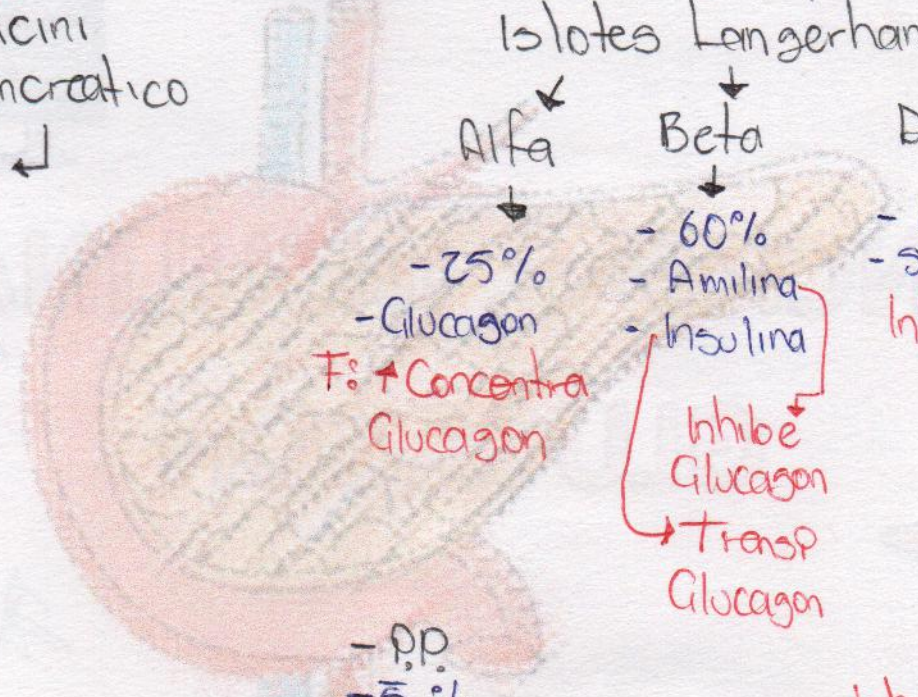 cini
ncreatico
Islotes Langerhan
Alfa
- 25%
- Glucagon
F: ↑ Concentra
Glucagon
Beta
- 60%
- Amilina
- Insulina
Inhibe
Glucagon
Transp
Glucagon
D
-
- s
In
- P.P.